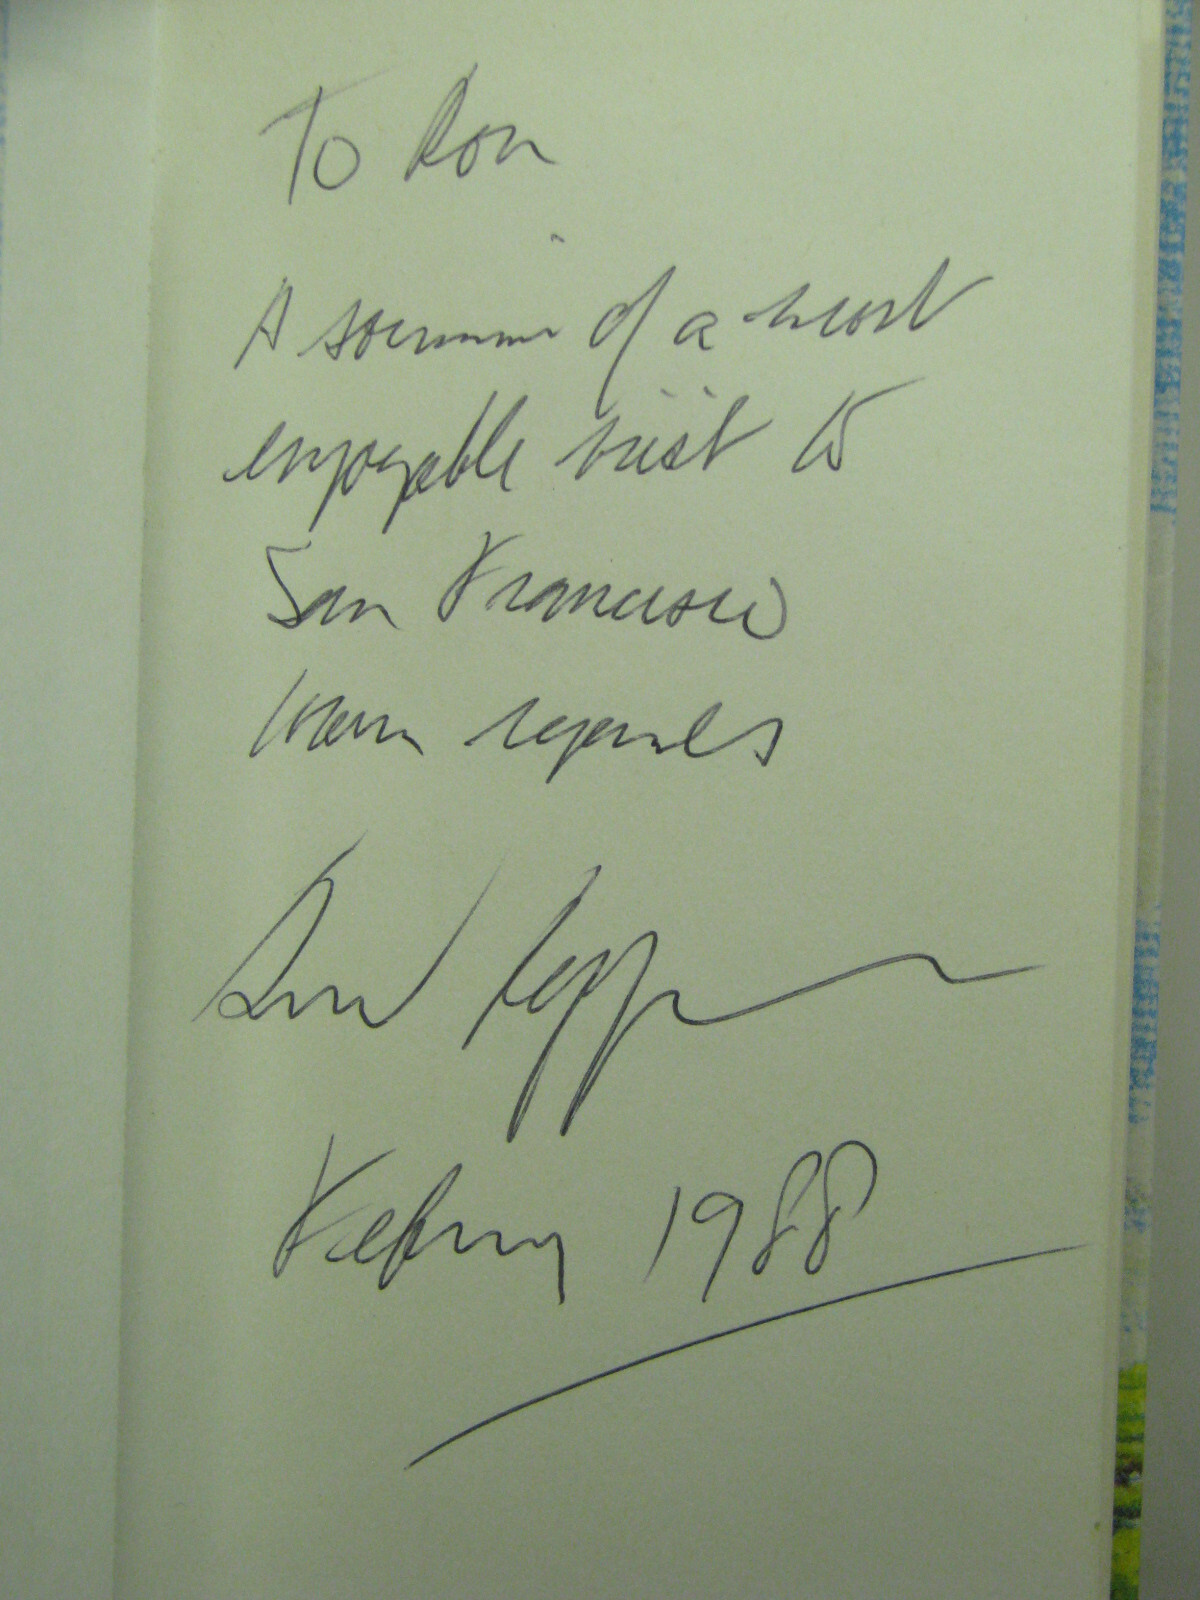 To Ron
A souvenir of a most
enjoyable visit to
San Francisco
Warm regards
February 1988